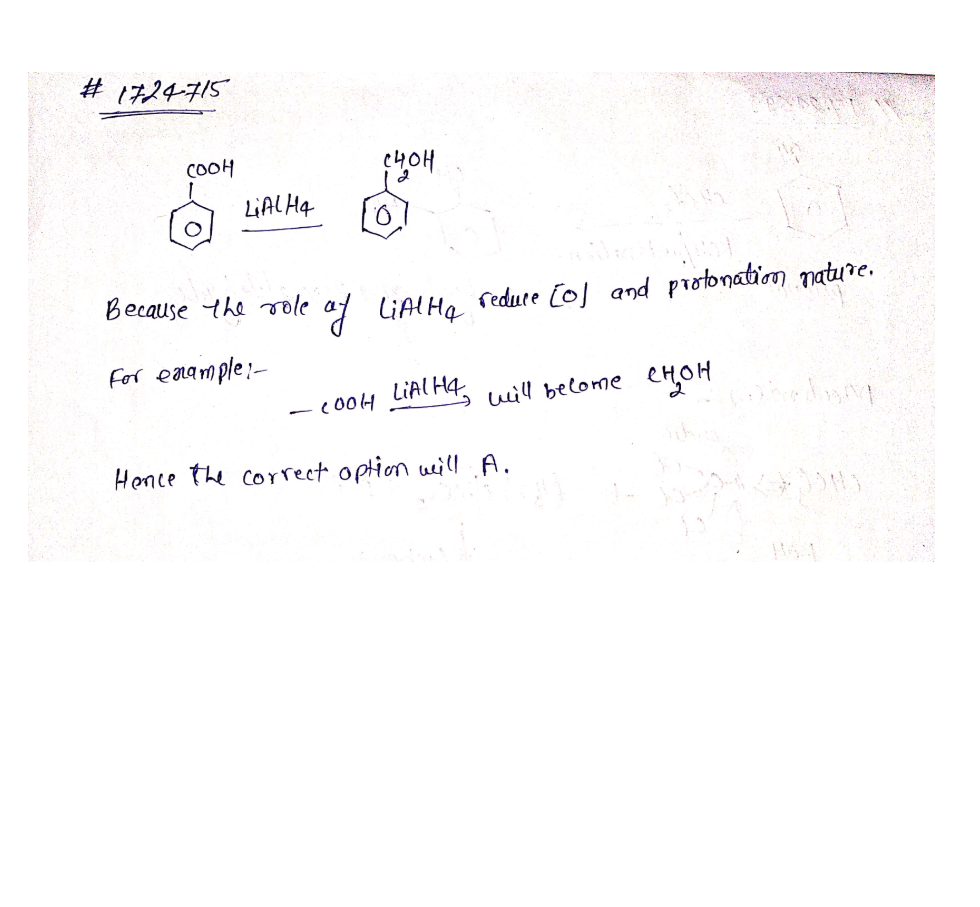 # 1724715
COOH CH2OH
LiAlH4
Because the role of LiAlH4 reduce [O] and protonation nature.
For example:-
- COOH LiAlH4 will become CH2OH
Hence the correct option will A.